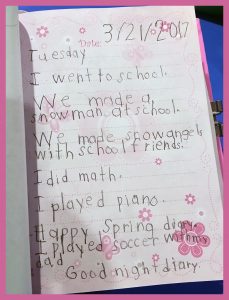 Date: 3/21/2017
Tuesday
I went to school.
We made a
snowman at school.
We made snow angels
with school friends.
I did math.
I played piano.
Happy Spring diary.
I played soccer with my
dad
Good night diary.